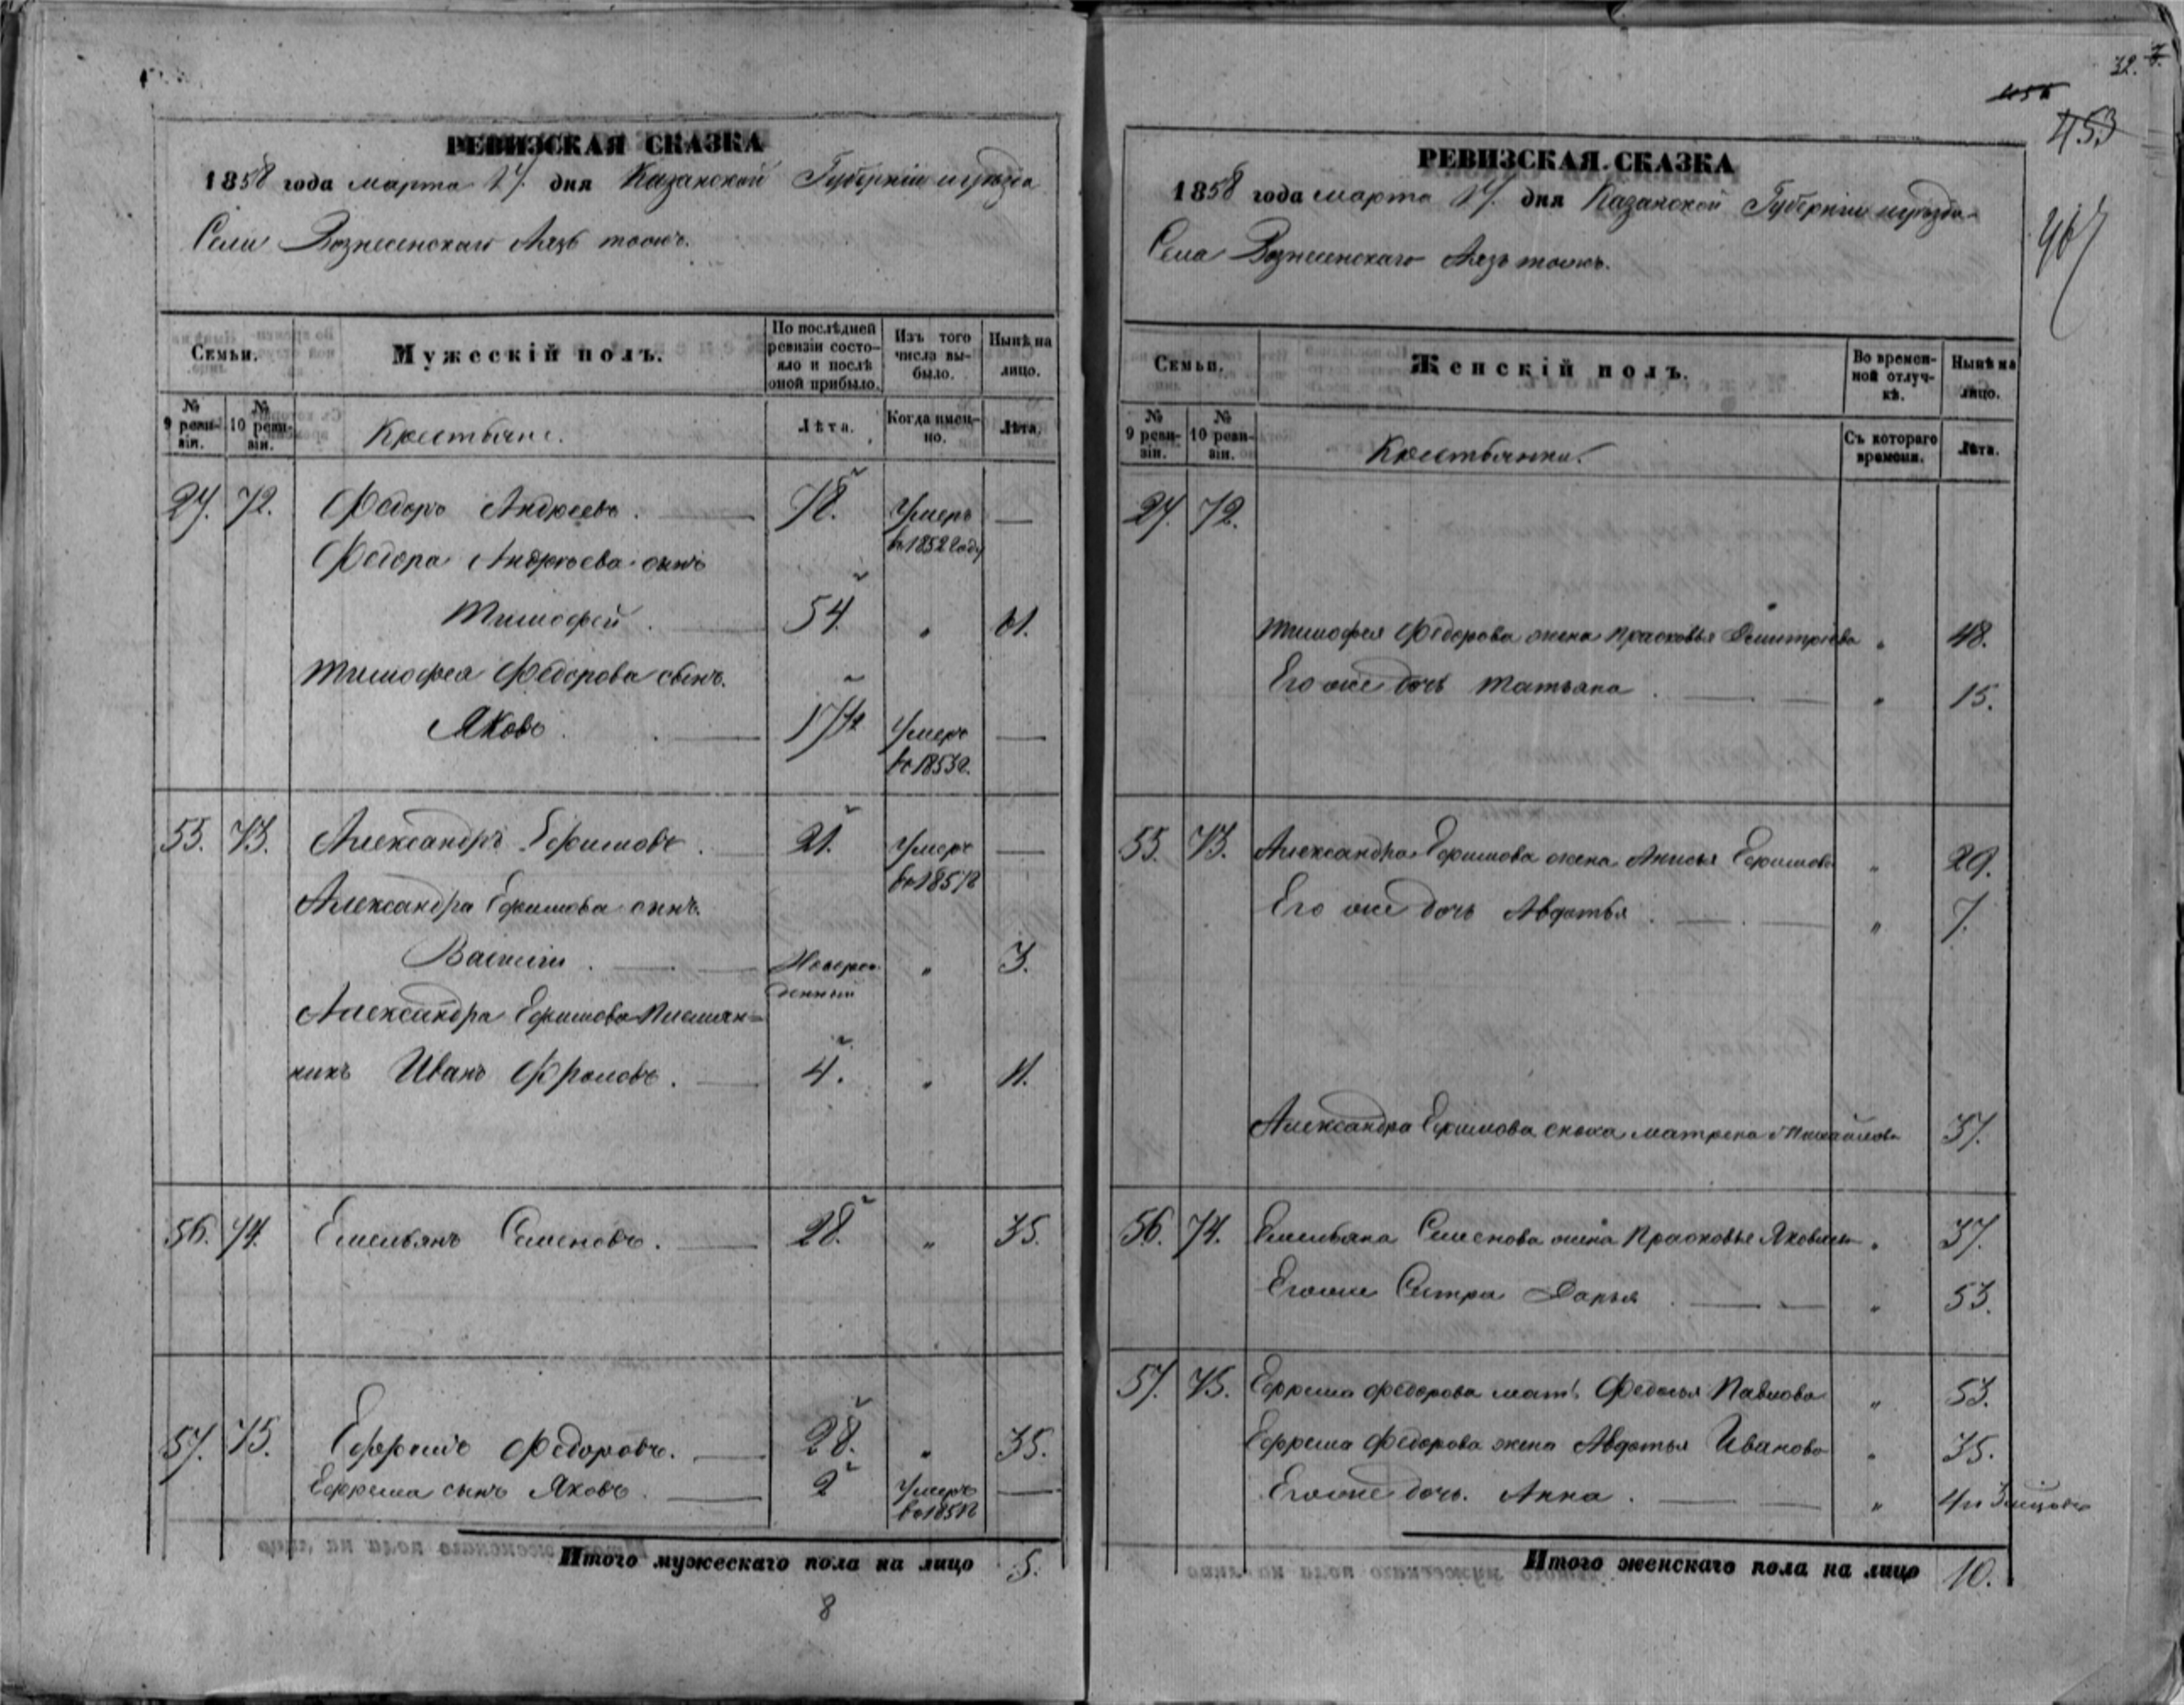 РЕВИЗСКАЯ СКАЗКА
1858 года марта 17. дня Казанской Губерніи и уѣзда
Села Вознесенскаго тожъ.
Семьи.
Мужескій полъ.
По послѣдней ревизіи состояло и послѣ оной прибыло.
Изъ того числа выбыло.
Нынѣ на лицо.
№ 9 ревизіи.
№ 10 ревизіи.
Крестьяне.
Лѣта.
Когда именно.
Лѣта.
27. 72. Федоръ Андреевъ. 78. Умеръ —
въ 1852 году
Федора Андреева сынъ
Тимофей. 54. „ 61.
Тимофея Федорова сынъ.
Яковъ. 17 1/2 Умеръ —
въ 1853 г.
55. 73. Александръ Ефимовъ. 21. Умеръ —
въ 1857 г
Александра Ефимова сынъ.
Василій. Новорож- „ 3.
денный
Александра Ефимова племян=
никъ Иванъ Фроловъ. 4. „ 11.
56. 74. Емельянъ Семеновъ. 28. „ 35.
57. 75. Ефремъ Федоровъ. 28. „ 35.
Ефрема сынъ Яковъ. 2 Умеръ —
Итого мужескаго пола на лицо 5.
8
32.
453
467
РЕВИЗСКАЯ СКАЗКА
1858 года марта 17. дня Казанской Губерніи и уѣзда
Села Вознесенскаго тожъ.
Семьи.
Женскій полъ.
Во временной отлучкѣ.
Нынѣ на лицо.
№ 9 ревизіи.
№ 10 ревизіи.
Крестьянки.
Съ котораго времени.
Лѣта.
27. 72.
Тимофея Федорова жена Прасковья Дмитріева „ 48.
Его же дочь Татьяна. „ 15.
55. 73. Александра Ефимова жена Анисья Ефимова „ 29.
Его же дочь Авдотья. „ 7.
Александра Ефимова сноха Матрена Михайлова 37.
56. 74. Емельяна Семенова жена Прасковья Яковлев „ 37.
Его же Сестра Дарья. „ 53.
57. 75. Ефрема Федорова мать Федосья Павлова „ 53.
Ефрема Федорова жена Авдотья Иванова „ 35.
Его же дочь. Анна. „ 4 и
Итого женскаго пола на лицо 10.